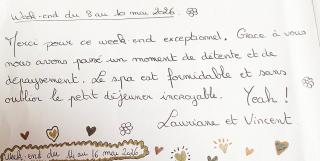 Week-end du 8 au 10 mai 2026
Merci pour ce week-end exceptionnel. Grâce à vous
nous avons passé un moment de détente et de
dépaysement. Le spa est formidable et sans
oublier le petit déjeuner incroyable. Yeah !
Lauriane et Vincent
Week-end du 14 au 16 mai 2026